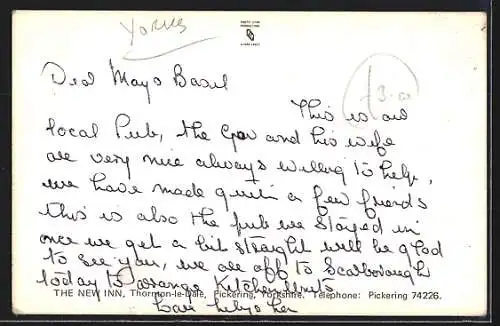 Yorks
£3.00
Dead Mays Basil
This is our
local Pub, the Guv and his wife
are very nice always willing to help,
we have made quite a few friends
this is also the pub we stayed in
once we get a bit straight will be glad
to see you, we are off to Scarborough
today to arrange Kitchen Units
THE NEW INN, Thornton-le-Dale, Pickering, Yorkshire. Telephone: Pickering 74226.